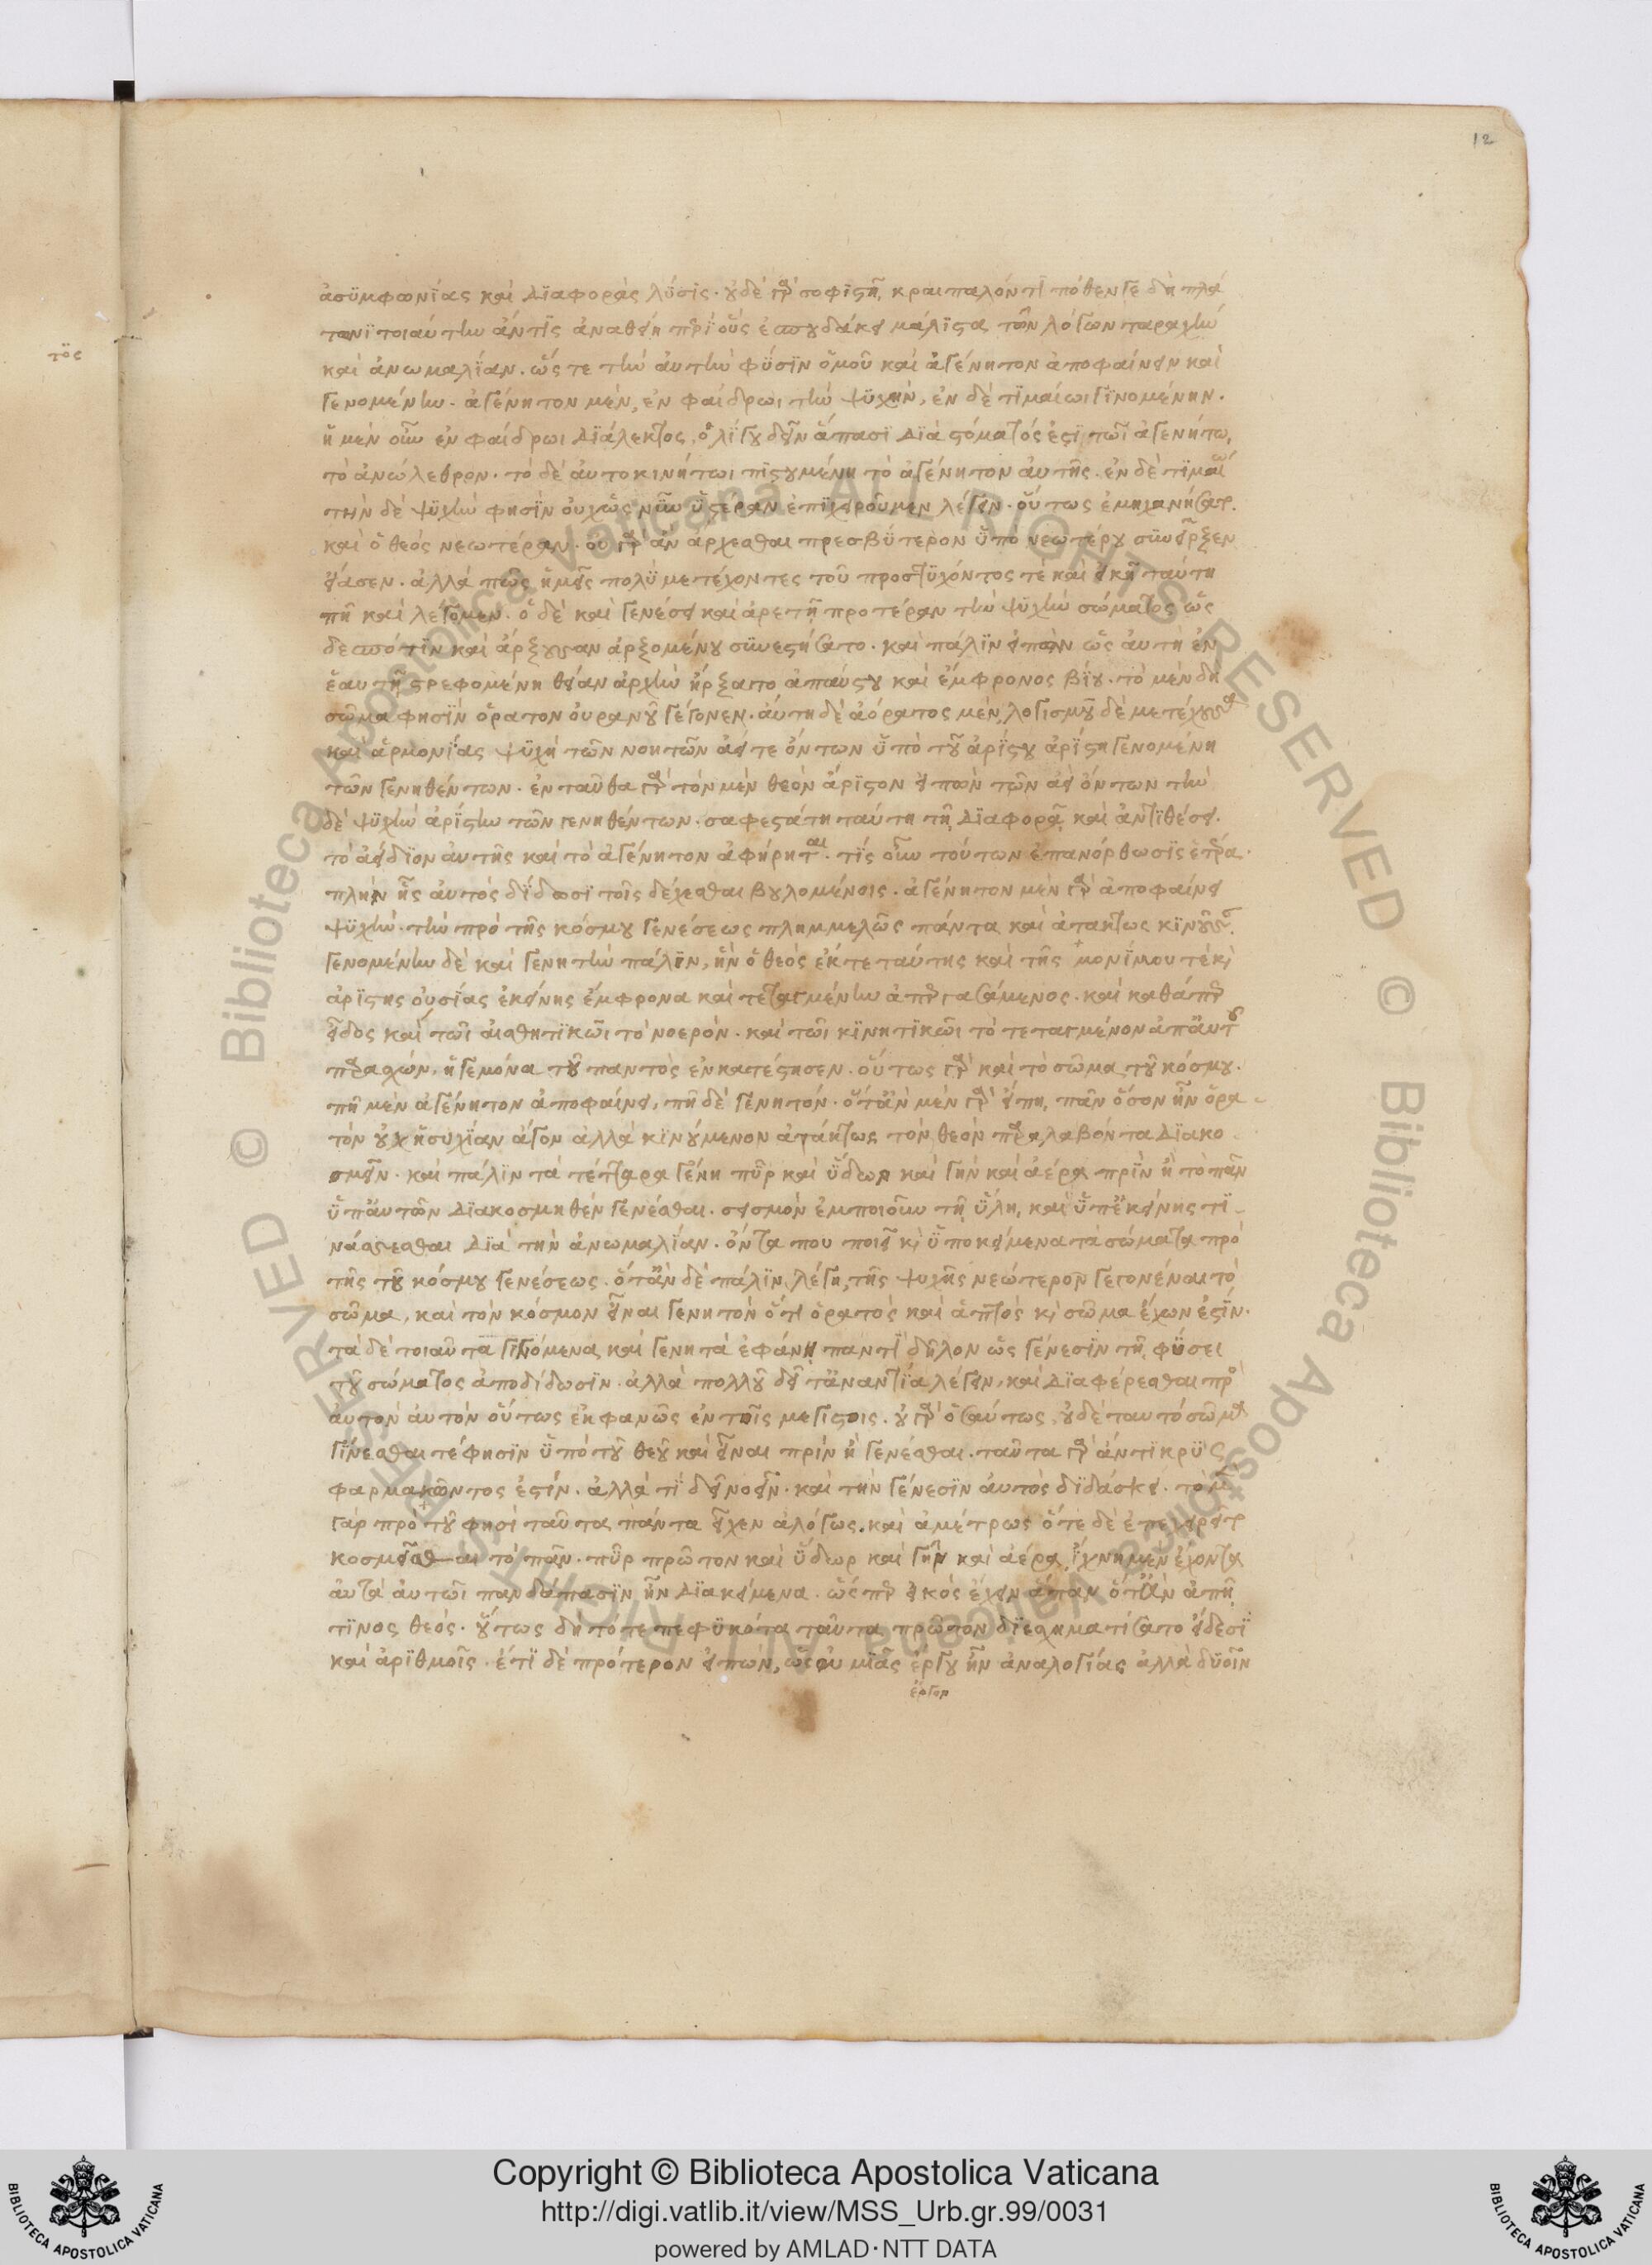 12
ἀσϋμφωνΐας καὶ Δϊαφορὰς λΰσϊς· οὐδὲ γὰρ σοφϊςῆ, κραιπαλόντϊ πόθεν γε δὴ πλά
τωνϊ τοιαύτην ἄντϊς ἀναθείη περὶ οὓς ἐσπουδάκει μάλϊςα τῶν λόγων ταραχὴν
τος
καὶ ἀνωμαλίαν. ὥς τε τὴν ἀυτὴν φύσϊν ὁμοῦ καὶ ἀγένητον ἀποφαίνειν καὶ
γενομένην. ἀγένητον μὲν, ἐν φαίδρωι τὴν ψϋχὴν, ἐν δὲ τϊμαίωι γϊνομένην.
ἡ μὲν οὖν ἐν φαίδρωι Δϊάλεκτος, ὀλίγου δεῖν ἅπασϊ Δϊὰ ςόματός ἐςϊ, τῶι ἀγενήτω,
τὸ ἀνώλεθρον. τὸ δὲ ἀυτοκινήτωι πϊςουμένη τὸ ἀγένητον ἀυτῆς. ἐν δὲ τϊμαίω
τὴν δὲ ψϋχὴν φησϊν οὐχ ὡς νῦν ὑςέραν ἐπϊχειροῦμεν λέγειν. οὕτως ἐμηχανήσατο
καὶ ὁ θεὸς νεωτέραν. οὐ γὰρ ἂν ἄρχεσθαι πρεσβύτερον ὑπὸ νεωτέρου συνείρξεν
εἴασεν. ἀλλά πως ἡμεῖς πολὺ μετέχοντες τοῦ προστυχόντος τὲ καὶ εἰκῆ ταύτη
πῆ καὶ λέγομεν. ὁ δὲ καὶ γενέσει καὶ ἀρετῆ προτέραν τὴν ψϋχὴν σώματος ὡς
δεσπότϊν καὶ ἄρξουσαν ἀρξομένου συνεςήσατο. καὶ πάλϊν εἰπὼν ὡς ἀυτὴ ἐν
ἑαυτῆ ςρεφομένη θείαν ἀρχὴν ἤρξατο ἀπαύςου καὶ ἔμφρονος βίου. τὸ μὲν δὴ
σῶμα φησϊν ὁρατὸν οὐρανοῦ γέγονεν. ἀυτὴ δὲ ἀόρατος μὲν, λογισμοῦ δὲ μετέχουσα
καὶ ἁρμονίας ψϋχὴ τῶν νοητῶν ἀεί τε ὄντων ὑπὸ τοῦ ἀρίςου ἀρίςη γενομένη
τῶν γενηθέντων. ἐνταῦθα γὰρ τὸν μὲν θεὸν ἄρϊςον εἰπὼν τῶν ἀεὶ ὄντων τὴν
δὲ ψϋχὴν ἀρίςην τῶν γενηθέντων. σαφεςάτη ταύτη τῆ, Δϊαφορᾶ, καὶ ἀντϊθέσει.
τὸ ἀείδϊον ἀυτῆς καὶ τὸ ἀγένητον ἀφήρηται. τίς οὖν τούτων ἐπανόρθωσϊς ἑτέρα.
πλὴν ἧς ἀυτὸς δίδωσϊ τοῖς δέχεσθαι βουλομένοις. ἀγένητον μὲν γὰρ ἀποφαίνει
ψϋχὴν. τὴν πρὸ τῆς κόσμου γενέσεως πλημμελῶς πάντα καὶ ἀτάκτως κϊνοῦσαν.
γενομένην δὲ καὶ γενητὴν πάλϊν, ἣν ὁ θεὸς ἔκ τε ταύτης καὶ τῆς μονίμου τὲ κὶ
ἀρίςης οὐσίας ἐκείνης ἔμφρονα καὶ τεταγμένην ἀπεργασάμενος. καὶ καθάπερ
εἶδος καὶ τῶι αἰσθητϊκῶι τὸ νοερὸν. καὶ τῶι κϊνητϊκῶι τὸ τεταγμένον ἀπ᾽ ἀυτοῦ
παρασχὼν, ἡγεμόνα τοῦ παντὸς ἐνκατέςησεν. οὕτως γὰρ καὶ τὸ σῶμα τοῦ κόσμου.
πῆ μὲν ἀγένητον ἀποφαίνει, πῆ δὲ γενητόν. ὅτ᾽ ἂν μὲν γὰρ εἴπη, πᾶν ὅσον ἦν ὁρα
τὸν οὐχ ἡσυχίαν ἄγον ἀλλὰ κϊνούμενον ἀτάκτως τὸν θεὸν παραλαβόντα Δϊακο
σμεῖν. καὶ πάλϊν τὰ τέτταρα γένη πῦρ καὶ ὕδωρ καὶ γῆν καὶ ἀέρα πρὶν ἢ τὸ πᾶν
ὑπ᾽ ἀυτῶν Δϊακοσμηθὲν γενέσθαι. σεισμὸν ἐμποιοῦν τῆ, ὕλη, καὶ ὑπ᾽ ἐκείνης τϊ
νάσσεσθαι Δϊὰ τὴν ἀνωμαλίαν. ὄντα που ποιεῖ κὶ ὑποκείμενα τὰ σώματα πρὸ
τῆς τοῦ κόσμου γενέσεως. ὅτ᾽ ἂν δὲ πάλϊν λέγη, τῆς ψυχῆς νεώτερον γεγονέναι τὸ
σῶμα, καὶ τὸν κόσμον εἶναι γενητὸν ὅτϊ ὁρατὸς καὶ ἁπτὸς κὶ σῶμα ἔχων ἐςϊν.
τὰ δὲ τοιαῦτα γϊνόμενα καὶ γενητὰ ἐφάνη παντὶ δῆλον ὡς γένεσϊν τῆ, φύσει
τοῦ σώματος ἀποδίδωσϊν. ἀλλὰ πολλοῦ δεῖ τἀναντία λέγειν, καὶ Δϊαφέρεσθαι πρὸς
ἀυτὸν ἀυτὸν οὕτως ἐκφανῶς ἐν τοῖς μεγίςοις. οὐ γὰρ ὡσαύτως, οὐδὲ ταυτὸ σῶμα
γίνεσθαι τέ φησϊν ὑπὸ τοῦ θεοῦ καὶ εἶναι πρὶν ἢ γενέσθαι. ταῦτα γὰρ ἄντϊκρϋς
φαρμακῶντος ἐςίν. ἀλλὰ τί δεῖ νοεῖν. καὶ τὴν γένεσϊν ἀυτὸς διδάσκει. τὸ μὲν
γὰρ πρὸ τοῦ φησὶ ταῦτα πάντα εἶχεν ἀλόγως. καὶ ἀμέτρως ὅτε δὲ ἐπεχειρεῖτο
κοσμεῖσθαι τὸ πᾶν. πῦρ πρῶτον καὶ ὕδωρ καὶ γῆν καὶ ἀέρα, ἴχνη μὲν ἔχοντα
ἄττα ἀυτῶν παντάπασϊν ἦν Δϊακείμενα. ὥσπερ εἰκὸς ἔχειν ἅπαν ὅτ᾽ ἂν ἀπῆ,
τϊνος θεός. οὕτως δὴ τότε πεφϋκότα ταῦτα πρῶτον διεσχηματίσατο εἴδεσϊ
καὶ ἀρϊθμοῖς. ἔτϊ δὲ πρότερον εἰπὼν, ὡς οὐ μιᾶς ἔργου ἦν ἀναλογίας ἀλλὰ δυοῖν
ἔργον
Copyright © Biblioteca Apostolica Vaticana
http://digi.vatlib.it/view/MSS_Urb.gr.99/0031
powered by AMLAD·NTT DATA